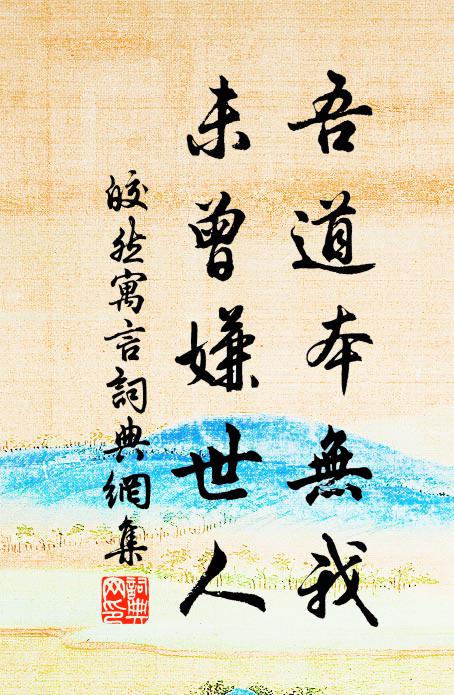 吾道本無我
未曾嫌世人
皎然寓言詞典網集
詞典網印